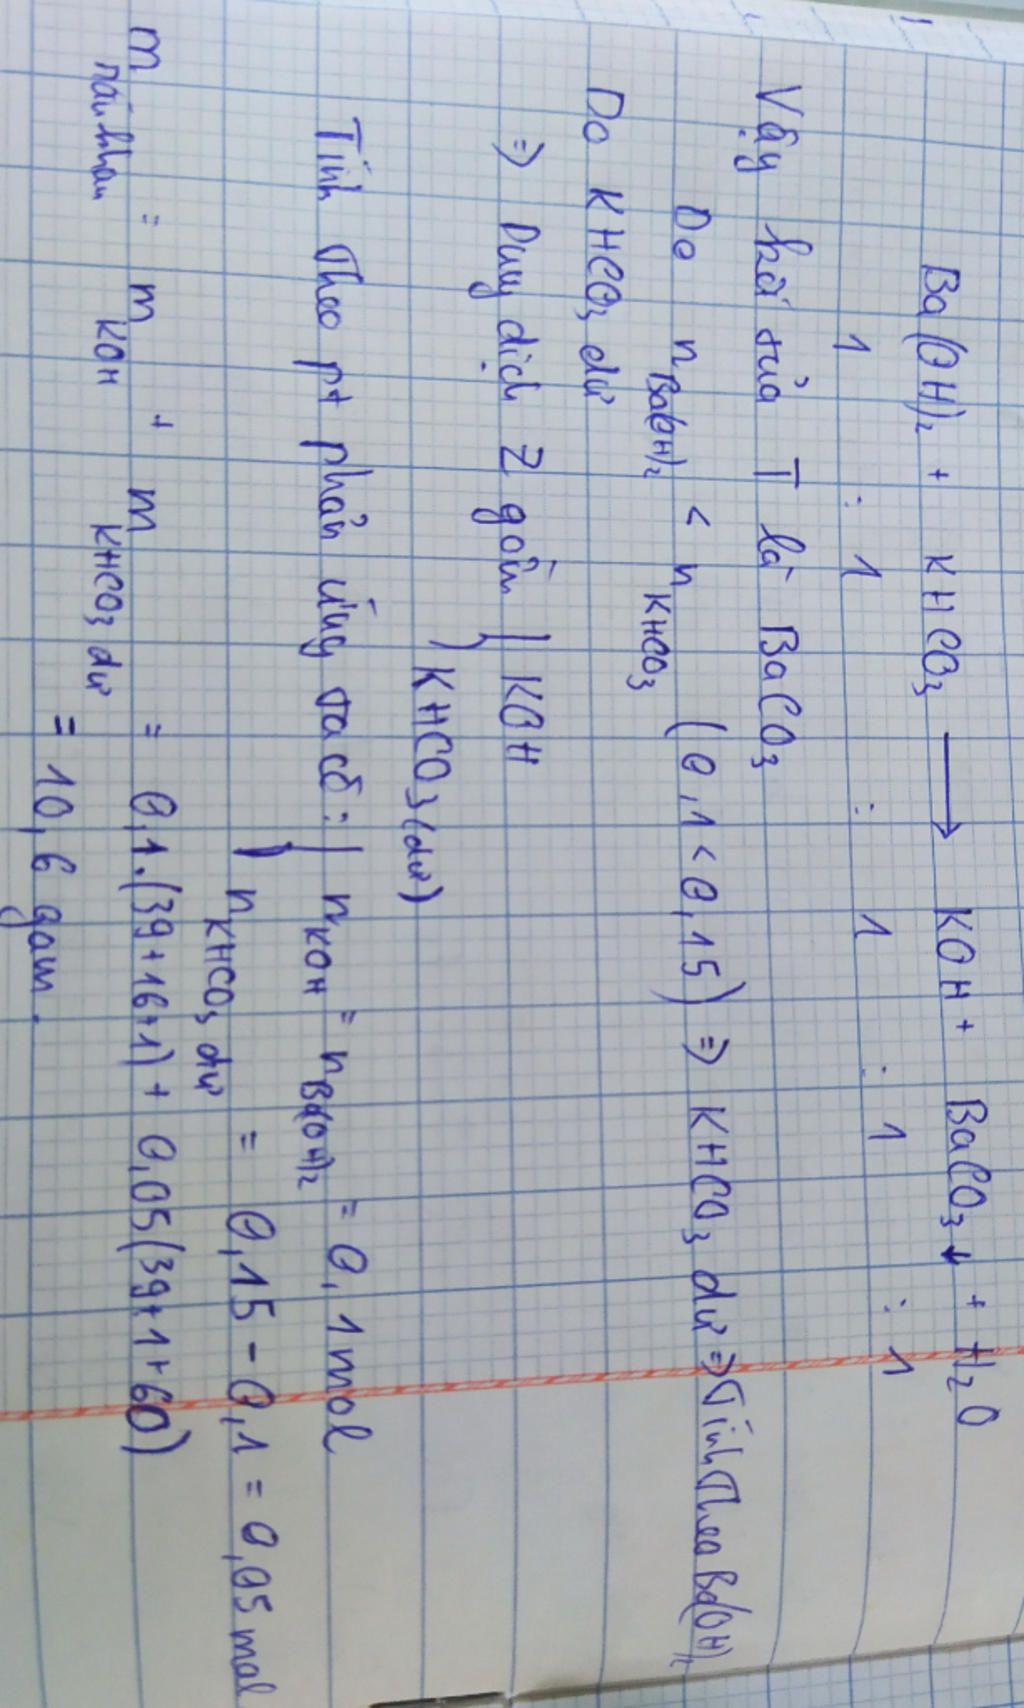 Ba(OH)₂ + KHCO₃ ⟶ KOH + BaCO₃↓ + H₂O
1 : 1 : 1 : 1 : 1
Vậy kết tủa T là BaCO₃
Do n Ba(OH)₂ < n KHCO₃ (0,1 < 0,15) ⇒ KHCO₃ dư ⇒ Tính theo Ba(OH)₂
Do KHCO₃ dư
⇒ Dung dịch Z gồm { KOH
KHCO₃ (dư)
Tính theo pt phản ứng ta có: { n KOH = n Ba(OH)₂ = 0,1 mol
n KHCO₃ dư = 0,15 - 0,1 = 0,05 mol
m rắn khan = m KOH + m KHCO₃ dư = 0,1.(39+16+1) + 0,05(39+1+60)
= 10,6 gam.